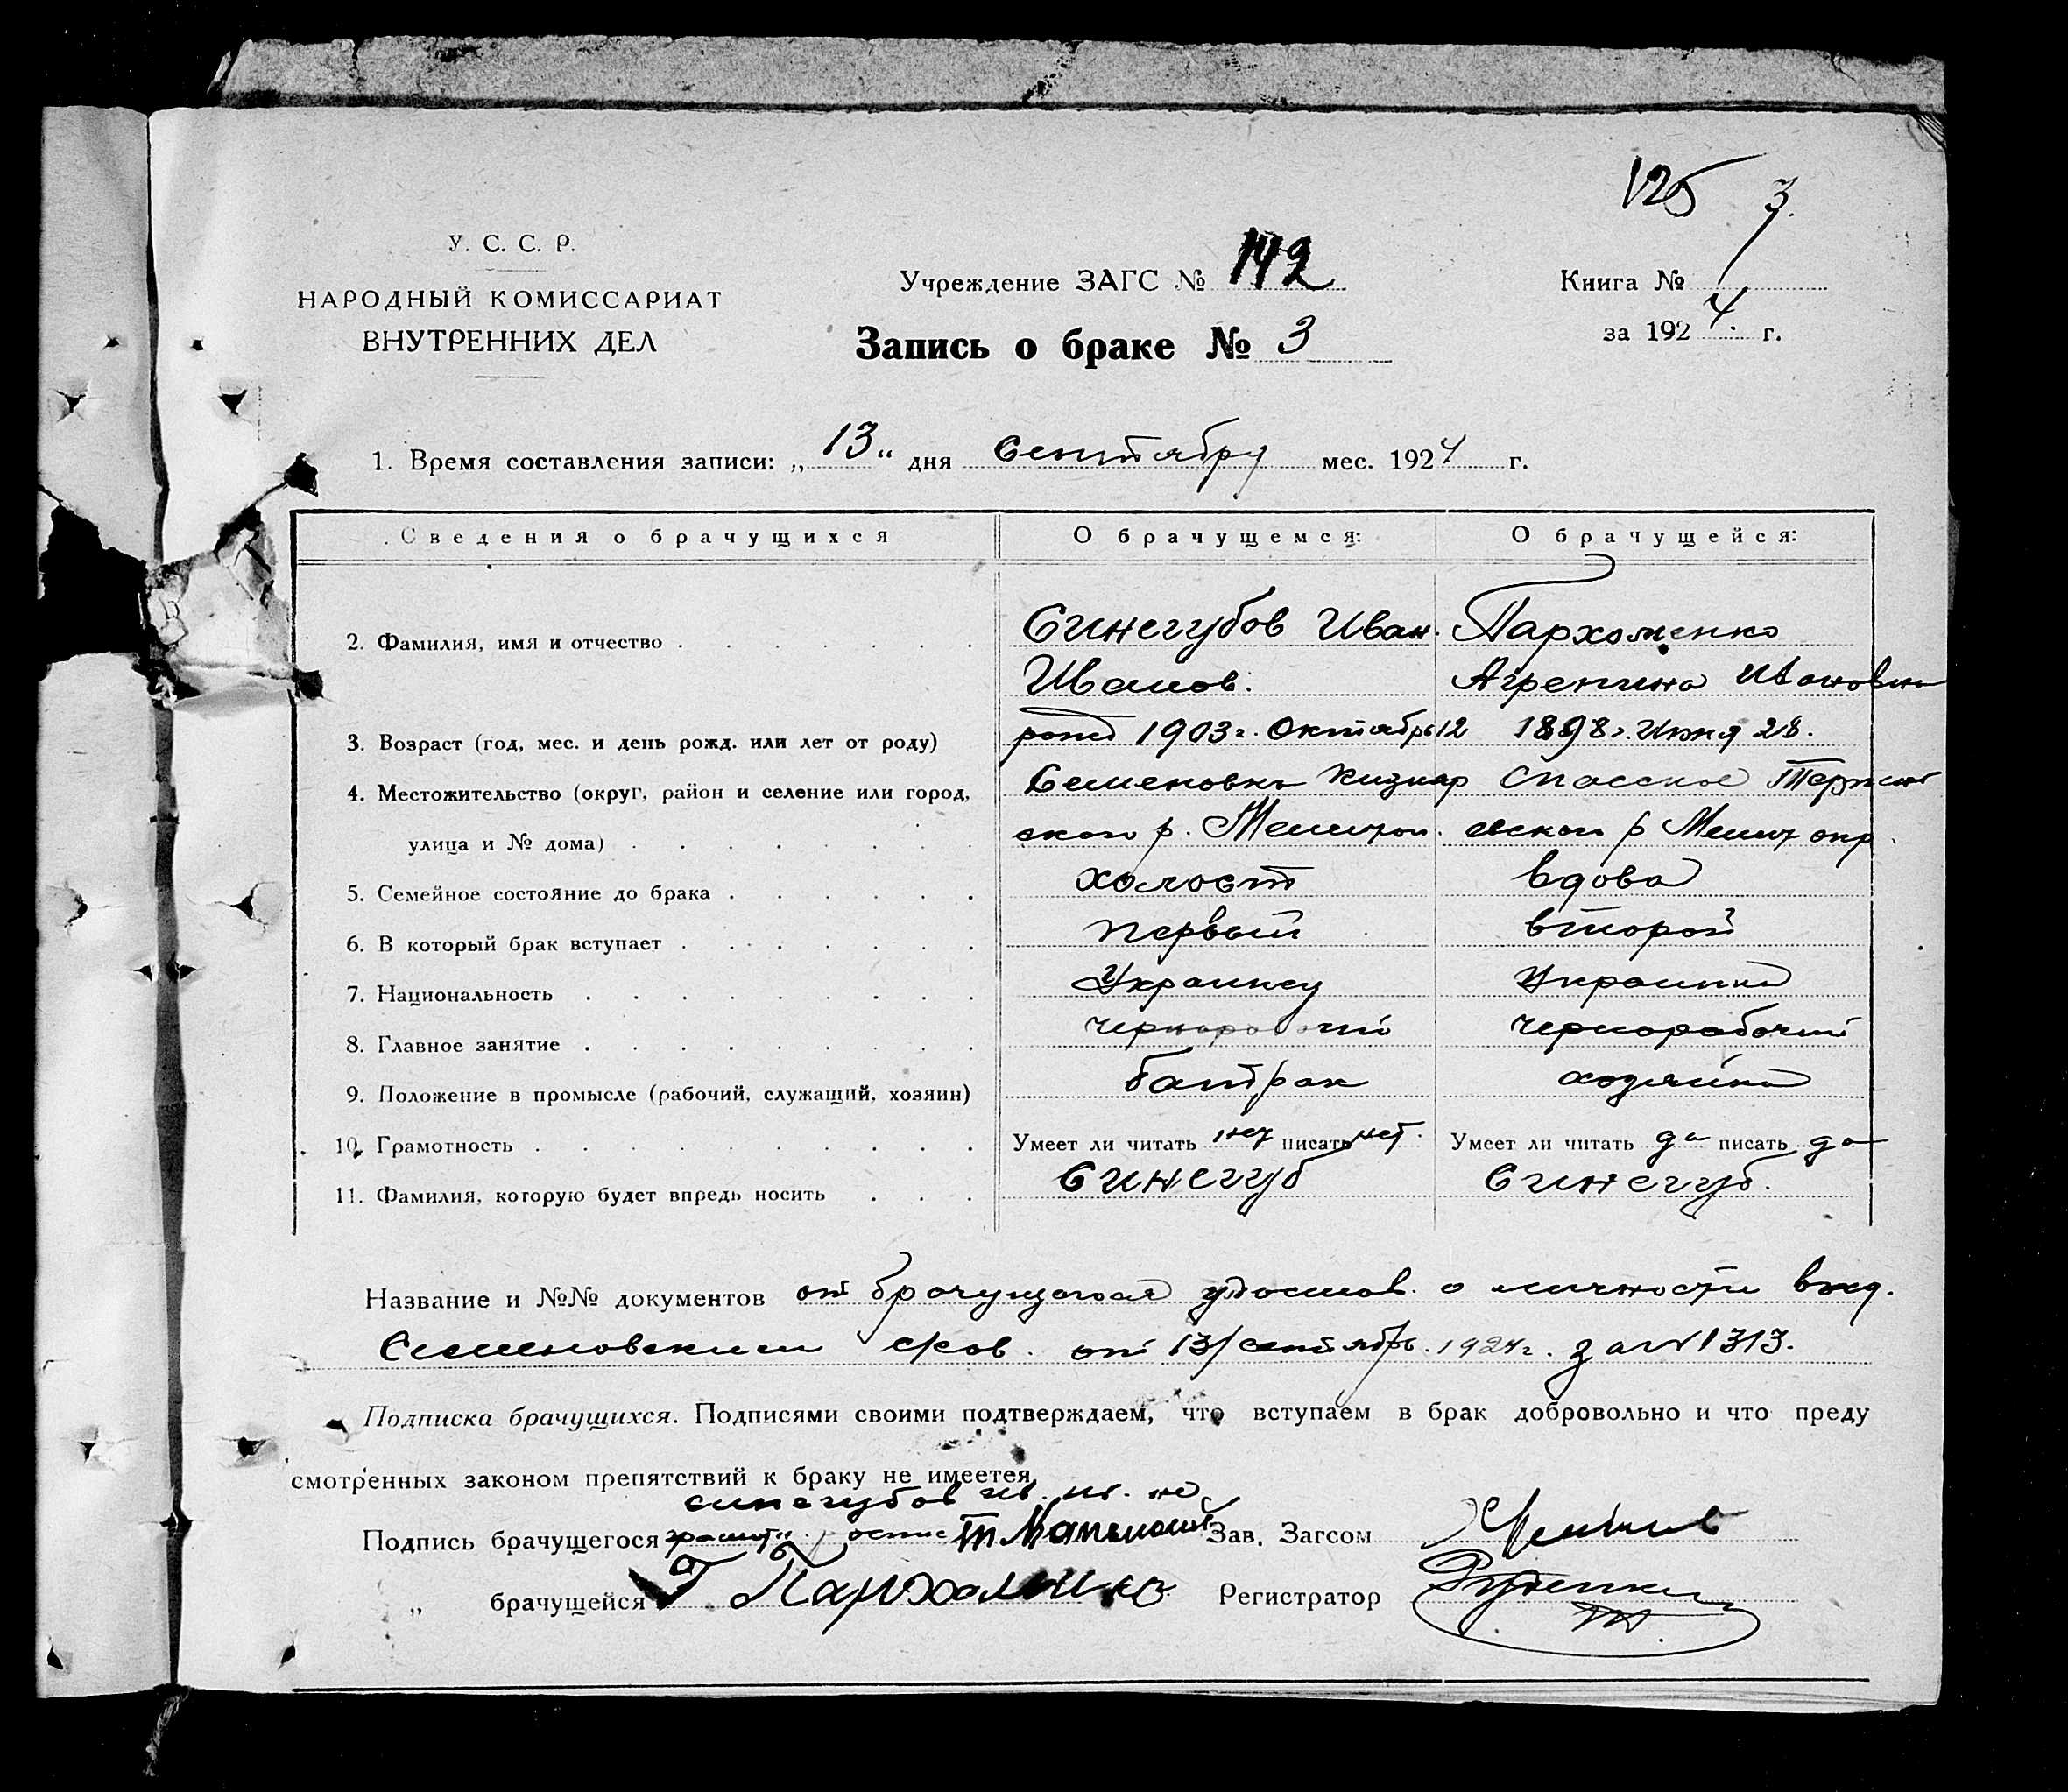 125 3.
У. С. С. Р.
НАРОДНЫЙ КОМИССАРИАТ
ВНУТРЕННИХ ДЕЛ
Учреждение ЗАГС № 142
Запись о браке № 3
Книга №
за 1924 г.
1. Время составления записи: „13“ дня Сентября мес. 1924 г.
Сведения о брачущихся О брачущемся: О брачущейся:
2. Фамилия, имя и отчество Синегубов Иван. Пархоменко
Иванов. Агрепина Ивановна
3. Возраст (год, мес. и день рожд. или лет от роду) рожд 1903 г. Октябрь 12 1898 г. Июня 28.
4. Местожительство (округ, район и селение или город, Семеновка Кизияр Спасское Терпень
улица и № дома) ского р. Мелитоп. евского р Мелит окр.
5. Семейное состояние до брака холост вдова
6. В который брак вступает первый второй
7. Национальность Украинец Украинка
8. Главное занятие чернорабочий чернорабочий
9. Положение в промысле (рабочий, служащий, хозяин) батрак хозяйка
10. Грамотность Умеет ли читать нет писать нет. Умеет ли читать да писать да
11. Фамилия, которую будет впредь носить Синегуб Синегуб.
Название и №№ документов от брачущагося удостов. о личности выд.
Семеновским от 13/сентябр. 1924 г. за № 1313.
Подписка брачущихся. Подписями своими подтверждаем, что вступаем в брак добровольно и что преду
смотренных законом препятствий к браку не имеется.
синегубов ив. ив. не
Подпись брачущегося грамот. Зав. Загсом
„ брачущейся Г Пархоменко Регистратор Руденко